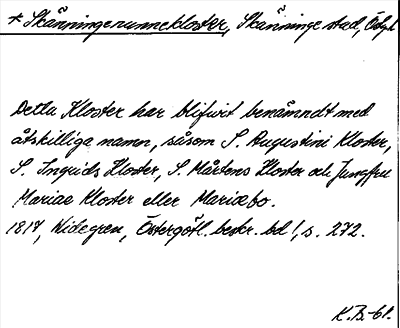 * Skänningenunnekloster, Skänninge stad, Östgl
Detta Kloster har blifvit benämndt med
åtskilliga namn, såsom S. Augustini Kloster,
S. Ingrids Kloster, S. Mårtens Kloster och Jungfru
Mariae Kloster eller Mariæbo.
1817, Widegren, Östergötl. beskr. bd 1, s. 272.
K.B.-61.